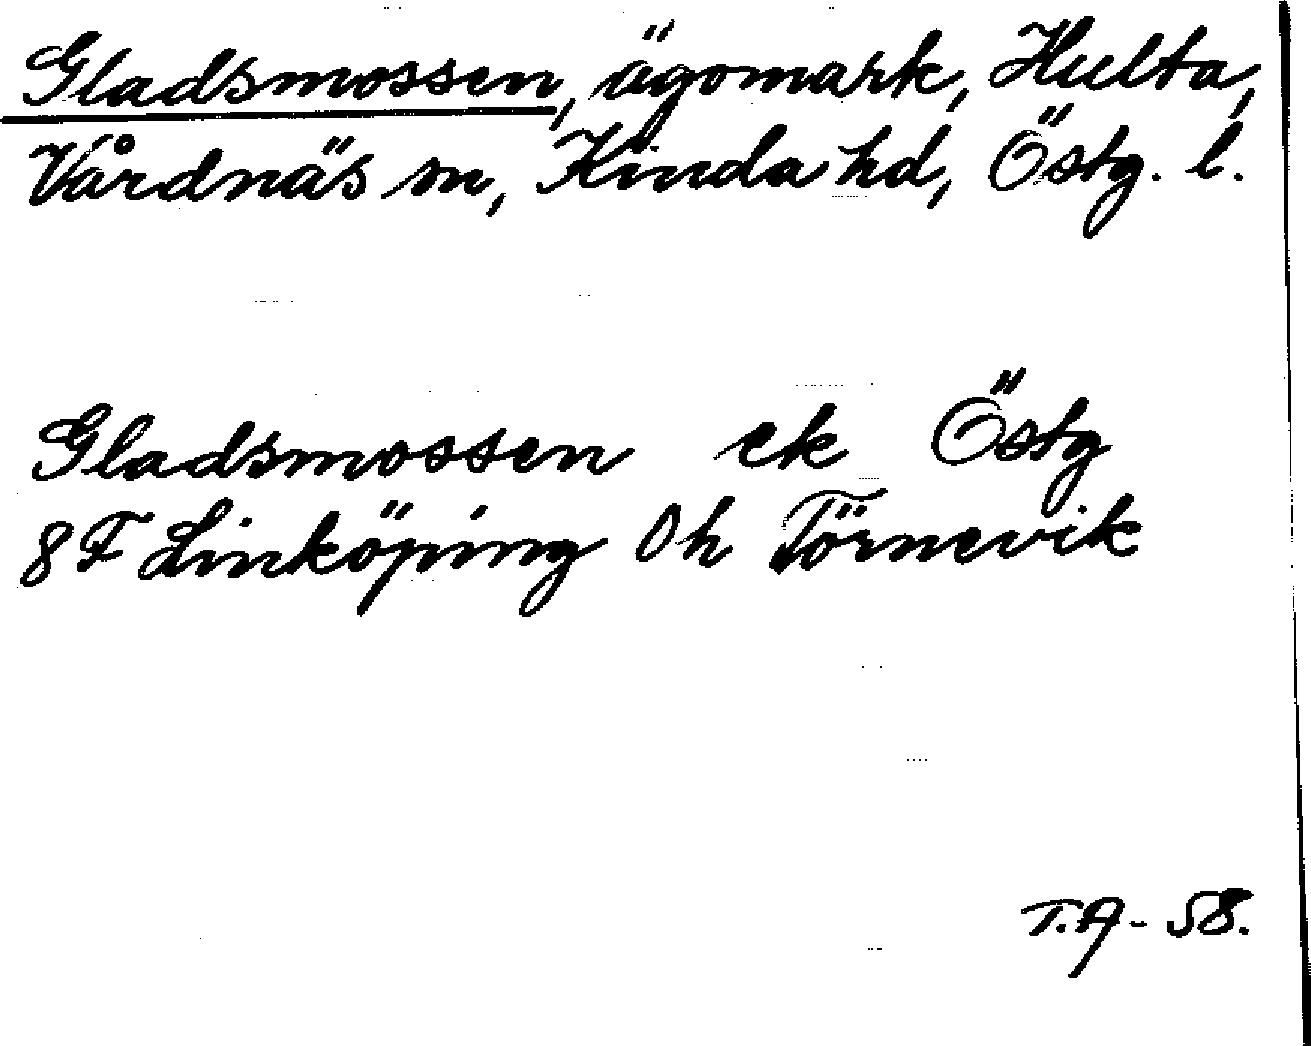 Gladsmossen, ägomark, Hulta,
Vårdnäs sn, Kinda hd, Östg. l.
Gladsmossen ek Östg
8 F Linköping 0 h Törnevik
T.A - 58.